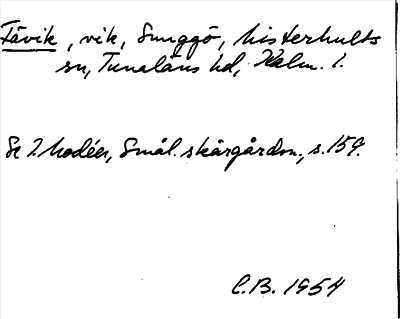 Fåvik, vik, Sunggö, Misterhults
sn, Tunaläns hd, Kalm. l.
Se I. Modéer, Smål. skärgårdsn., s. 159.
C.B. 1954